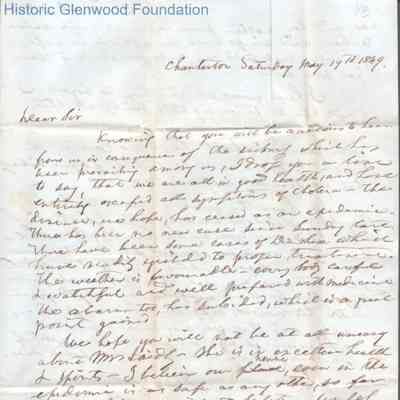 Historic Glenwood Foundation
Charleston Saturday May 19th 1849.
Dear Sir
Knowing that you will be anxious to hear
from us in consequence of the sickness which has
been prevailing among us, I drop you a line
to say, that we are all in good health, and have
entirely escaped all symptoms of cholera - The
disease, we hope, has ceased as an epidemic.
There has been no new case since Sunday last
There have been some cases of which
have readily yielded to proper treatment.
The weather is favourable - every body careful
& watchful and well prepared with medicine
The alarm too, has subsided, which is a great
point gained
We hope you will not be at all uneasy
about Mrs - She is in excellent health
& spirits - I believe our place, even in the
epidemic is as safe as any other, so far